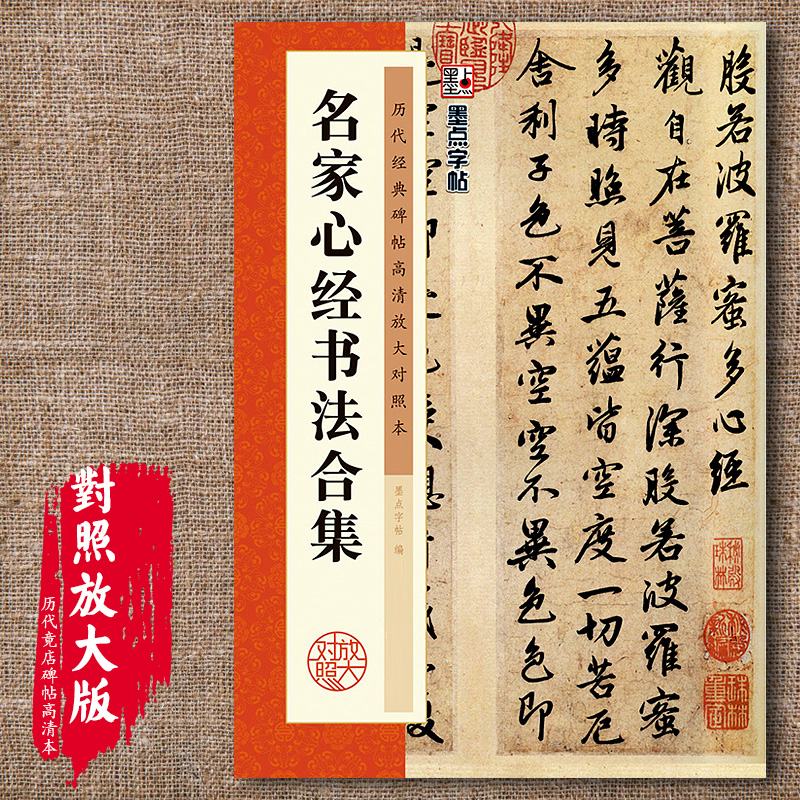 名家心经书法合集
历代经典碑帖高清放大对照本
墨点字帖 编
放大对照
墨点
墨点字帖
般若波羅蜜多心經
觀自在菩薩行深般若波羅蜜
多時照見五蘊皆空度一切苦厄
舍利子色不異空空不異色色即
對照放大版
历代竟店碑帖高清本